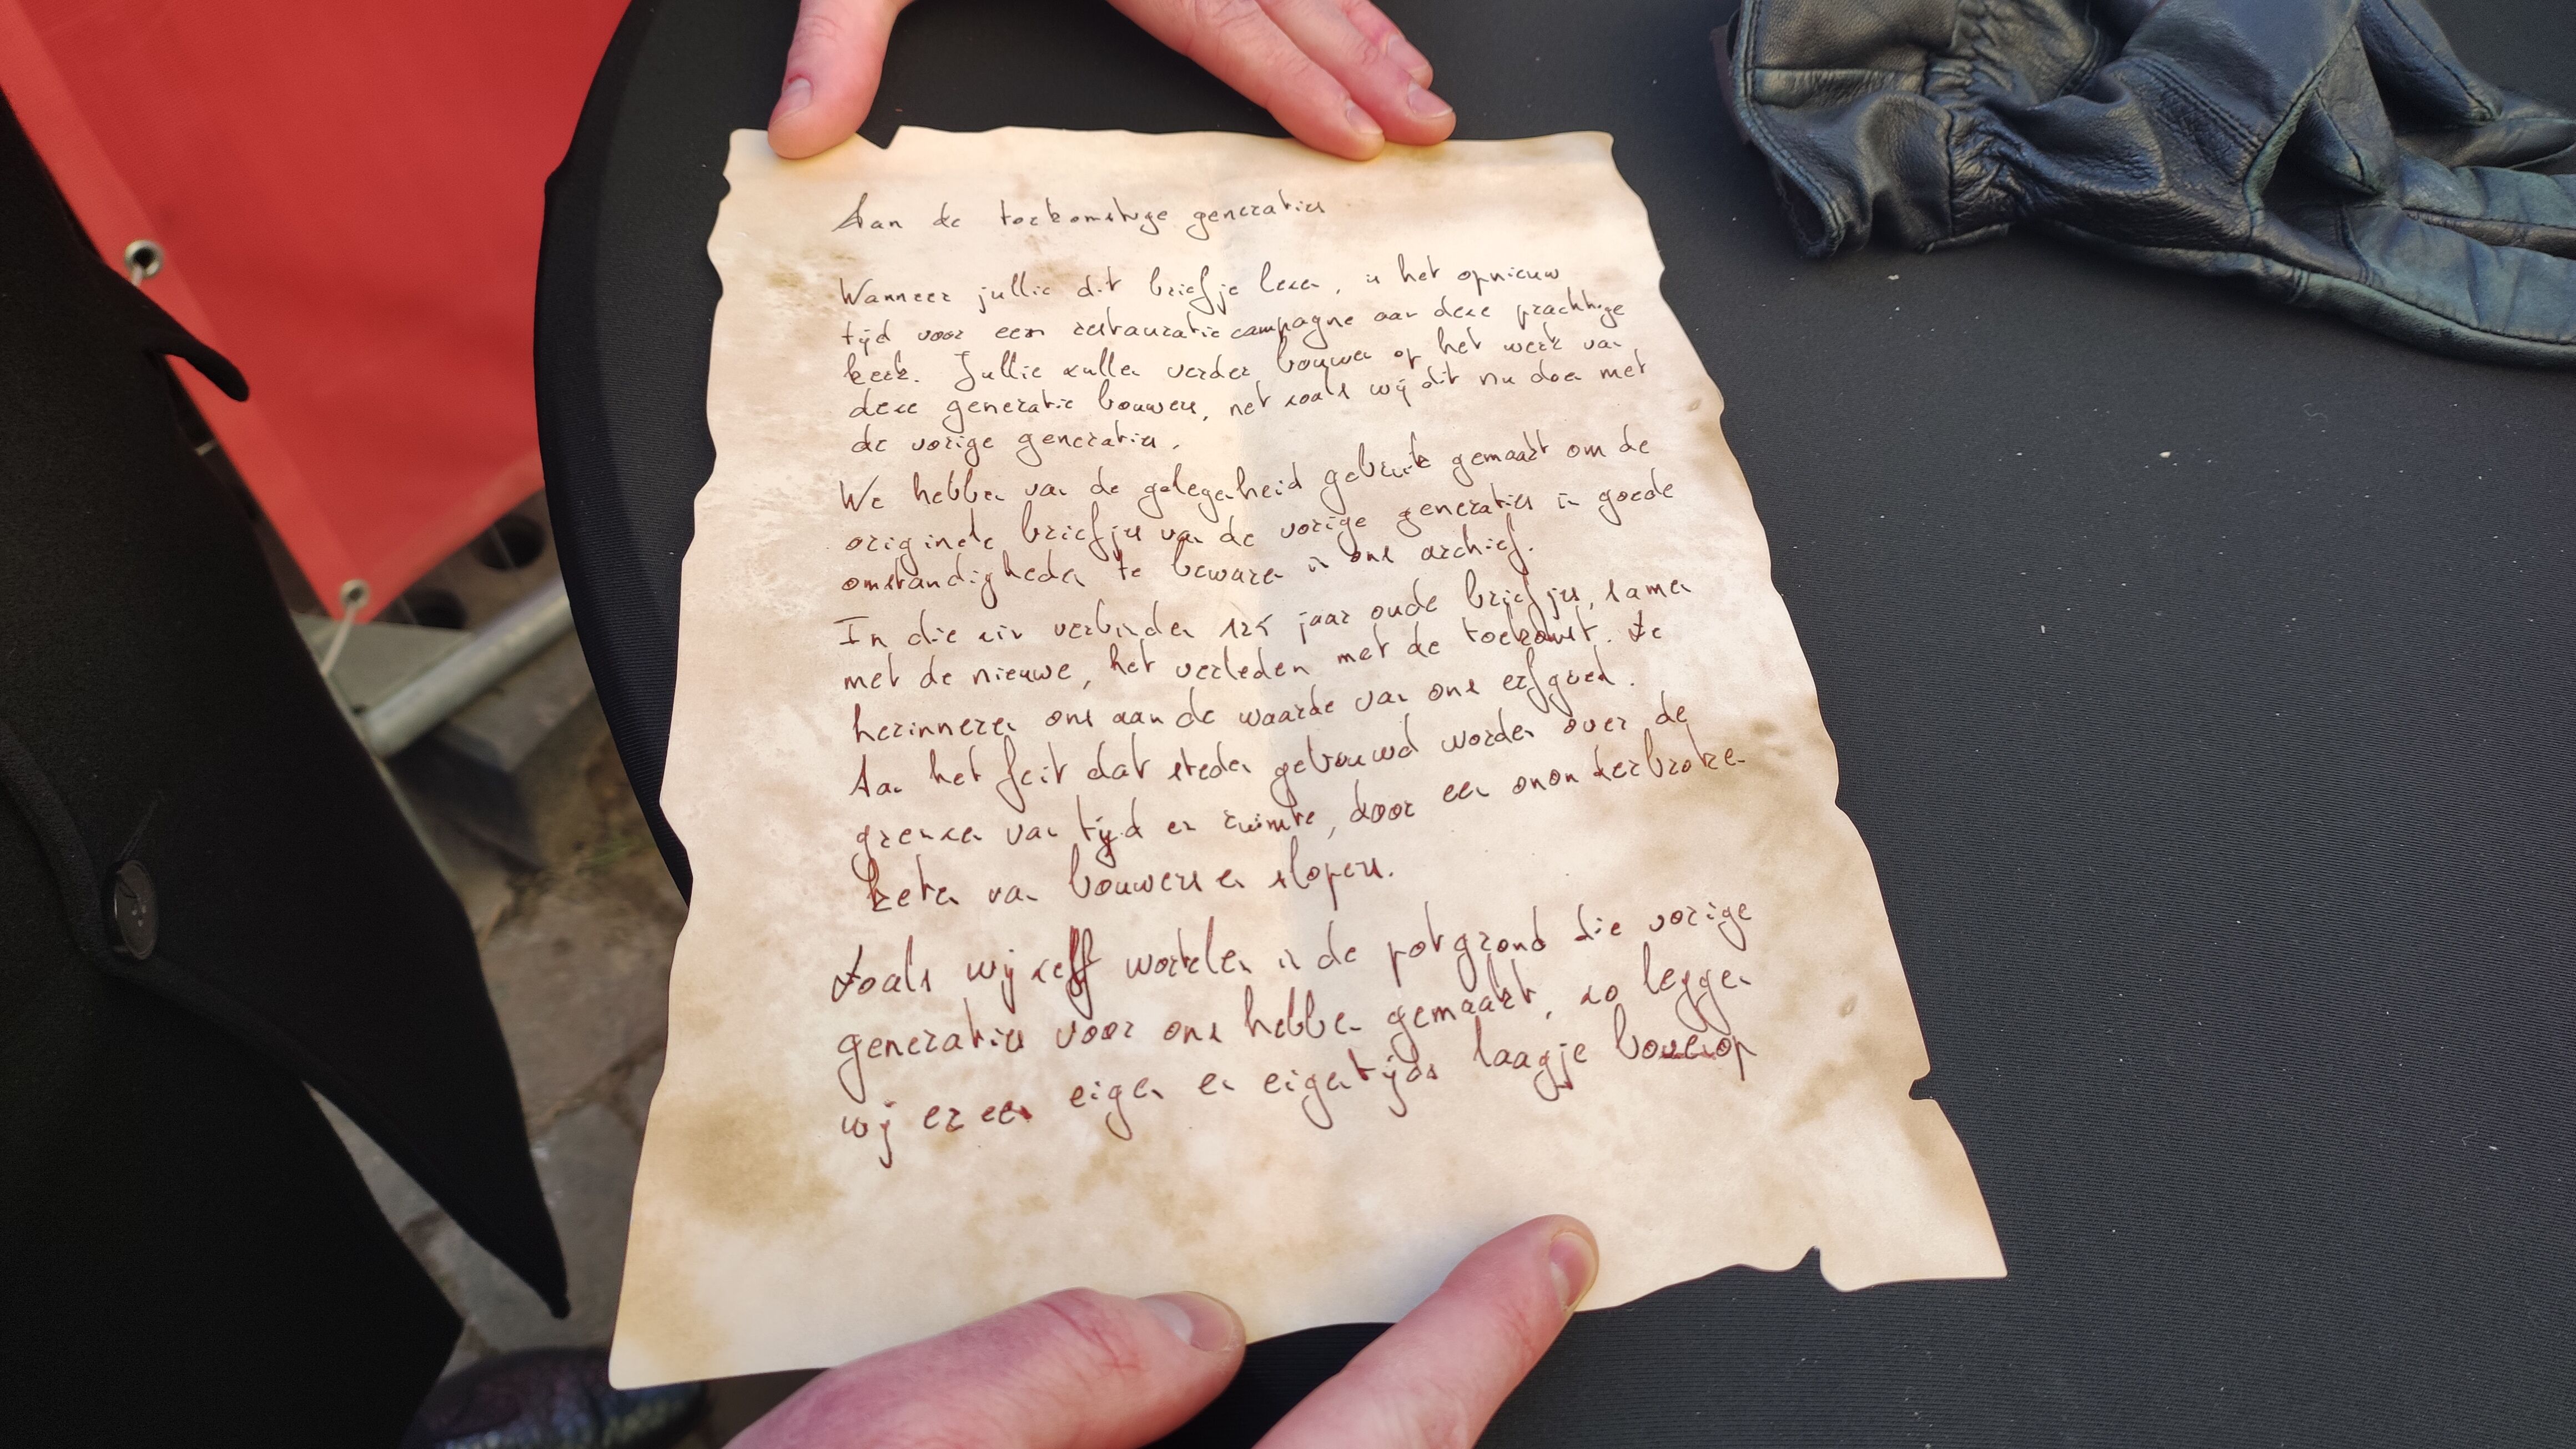 Aan de toekomstige generaties
Wanneer jullie dit briefje lezen, is het opnieuw
tijd voor een restauratiecampagne aan deze prachtige
kerk. Jullie zullen verder bouwen op het werk van
deze generatie bouwers, net zoals wij dit nu doen met
de vorige generaties.
We hebben van de gelegenheid gebruik gemaakt om de
originele briefjes van de vorige generaties in goede
omstandigheden te bewaren in ons archief.
In die zin verbinden 125 jaar oude briefjes, samen
met de nieuwe, het verleden met de toekomst. Ze
herinneren ons aan de waarde van ons erfgoed.
Aan het feit dat steden gebouwd worden over de
grenzen van tijd en ruimte, door een ononderbroken
keten van bouwers en slopers.
Zoals wij zelf wortelen in de potgrond die vorige
generaties voor ons hebben gemaakt, zo leggen
wij er een eigen en eigentijds laagje bovenop